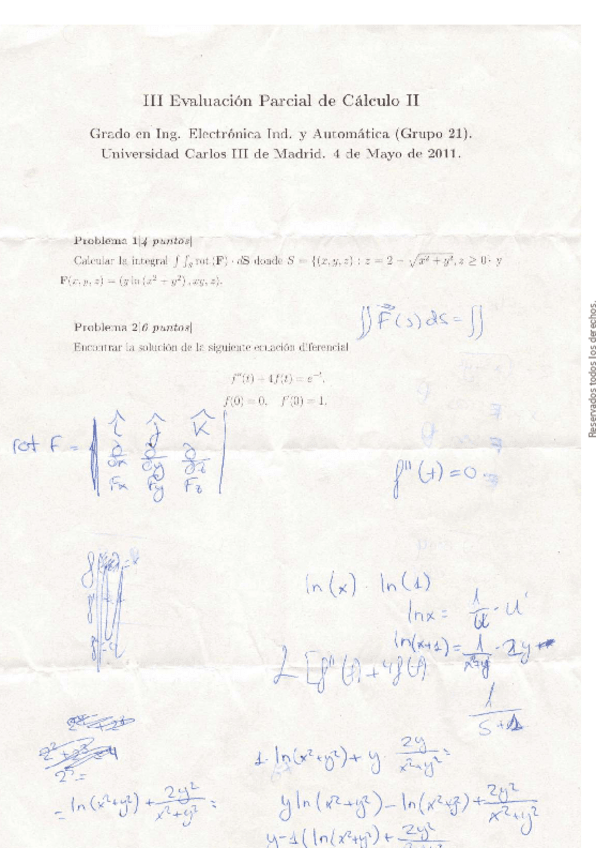 III Evaluación Parcial de Cálculo II
Grado en Ing. Electrónica Ind. y Automática (Grupo 21).
Universidad Carlos III de Madrid. 4 de Mayo de 2011.
Problema 1[4 puntos]
Calcular la integral ∫∫_S rot (F) · dS donde S = {(x, y, z) : z = 2 − √(x² + y²), z ≥ 0} y
F(x, y, z) = (y ln (x² + y²), xy, z).
∬ F(s) ds = ∬
Problema 2[6 puntos]
Encontrar la solución de la siguiente ecuación diferencial
f''(t) + 4f(t) = e^{-t},
f(0) = 0, f'(0) = 1.
rot F =
i j k
∂/∂x ∂/∂y ∂/∂z
Fx Fy Fz
f''(t) = 0
ln(x) · ln(1)
ln x = 1/u · u'
ln(x+1) = 1/(x²+y²) · 2y
L [f''(t) + 4f(t)
1/(s+1)
2² =
1·ln(x²+y²) + y · 2y/(x²+y²) =
= ln(x²+y²) + 2y²/(x²+y²) =
y ln(x²+y²) − ln(x²+y²) + 2y²/(x²+y²)
y−1 (ln(x²+y²) + 2y²
Reservados todos los derechos.